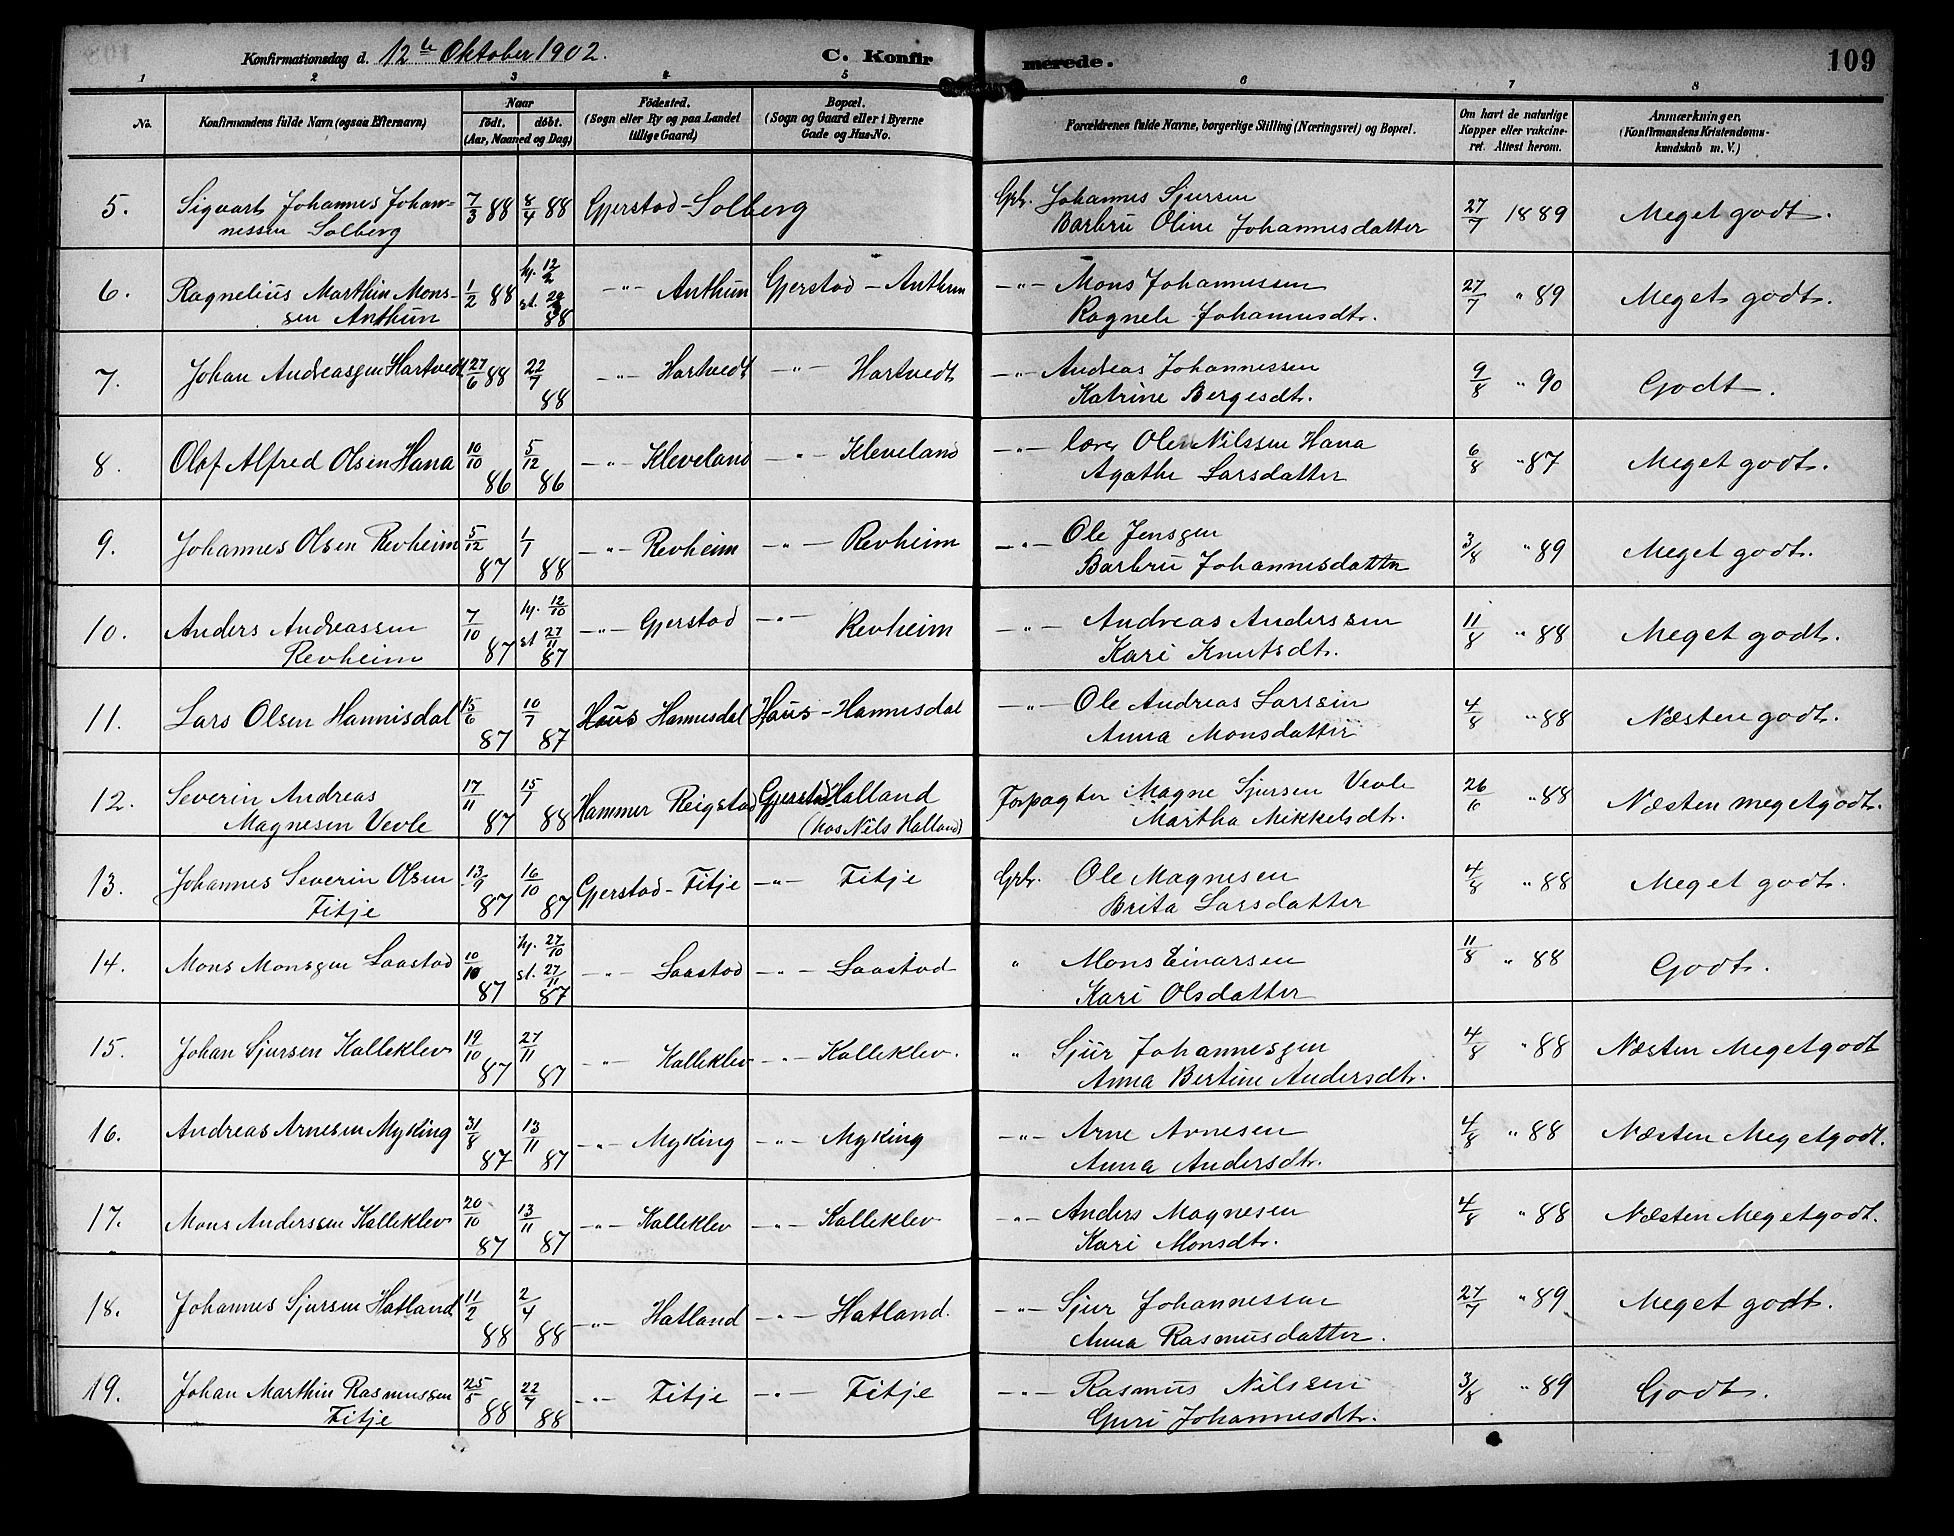 Konfirmationsdag d. 12te Oktober 1902. C. Konfirmerede. 109
1 2 3 4 5 6 7 8
No. Konfirmandens fulde Navn (ogsaa Efternavn) Naar født, døbt. (Aar, Maaned og Dag) Fødested. (Sogn eller By og paa Landet tillige Gaard) Bopæl. (Sogn og Gaard eller i Byerne Gade og Hus-No. Forældrenes fulde Navne, borgerlige Stilling (Næringsvei) og Bopæl. Om havt de naturlige Kopper eller vakcineret. Attest herom. Anmærkninger. (Konfirmandens Kristendomskundskab m. V.)
5. Sigvart Johannes Johan- 7/3 88 8/4 88 Gjerstad - Solberg Gbr. Johannes Sjursen 27/7 1889 Meget godt.
nessen Solberg Barbru Oline Johannesdatter
6. Ragnelius Marthin Mons- 1/2 88 hj. 12/2 -"- Anthun Gjerstad - Anthun -"- Mons Johannessen 27/7 " 89 Meget godt.
sen Anthun st. 88 Ragnele Johannesdtr.
7. Johan Andreassen Hartvedt 27/6 88 22/7 88 -"- Hartvedt -"- Hartvedt -"- Andreas Johannessen 9/8 " 90 Godt.
Katrine Bergesdtr.
8. Olaf Alfred Olsen Hana 10/10 86 5/12 86 -"- Kleveland -"- Kleveland -"- lærer Ole Nilssen Hana 6/8 " 87 Meget godt.
Agathe Larsdatter
9. Johannes Olsen Revheim 5/12 87 1/1 88 -"- Revheim -"- Revheim -"- Ole Jensen 3/8 " 89 Meget godt.
Barbru Johannesdatter
10. Anders Andreassen 7/10 87 hj. 12/10 -"- Gjerstad -"- Revheim -"- Andreas Anderssen 11/8 " 88 Meget godt.
Revheim st. 27/11 87 Kari Knutsdtr.
11. Lars Olsen Hannisdal 15/6 87 10/7 87 Haus Hannisdal Haus - Hannisdal -"- Ole Andreas Larssen 4/8 " 88 Næsten godt.
Anna Monsdatter
12. Severin Andreas 17/11 87 15/1 88 Hammer Reigstad Gjerstad Halland Forpagter Magne Sjursen Vevle 26/6 " 88 Næsten megetgodt.
Magnesen Vevle (hos Nils Halland) Martha Mikkelsdtr.
13. Johannes Severin Olsen 13/9 87 16/10 87 Gjerstad - Fitje -"- Fitje Gbr. Ole Magnesen 4/8 " 88 Meget godt.
Fitje Brita Larsdatter
14. Mons Monssen Saastad 10/10 87 hj. 27/10 -"- Saastad -"- Saastad " Mons Einarsen 11/8 " 88 Godt.
st. 27/11 87 Kari Olsdatter
15. Johan Sjursen Kalleklev 19/10 87 27/11 87 -"- Kalleklev -"- Kalleklev. " Sjur Johannessen 4/8 " 88 Næsten Megetgodt
Anna Bertine Andersdtr.
16. Andreas Arnesen Myking 31/8 87 13/11 87 -"- Myking -"- Myking -"- Arne Arnesen 4/8 " 88 Næsten Megetgodt.
Anna Andersdtr.
17. Mons Anderssen Kalleklev 20/10 87 13/11 87 -"- Kalleklev -"- Kalleklev -"- Anders Magnesen 4/8 " 88 Næsten Megetgodt.
Kari Monsdtr.
18. Johannes Sjursen Hatland 11/2 88 2/4 88 -"- Hatland -"- Hatland. -"- Sjur Johannessen 27/7 " 89 Meget godt.
Anna Rasmusdatter.
19. Johan Marthin Rasmussen 25/5 88 22/7 88 -"- Fitje -"- Fitje -"- Rasmus Nilssen 3/8 " 89 Godt.
Fitje Guri Johannesdtr.